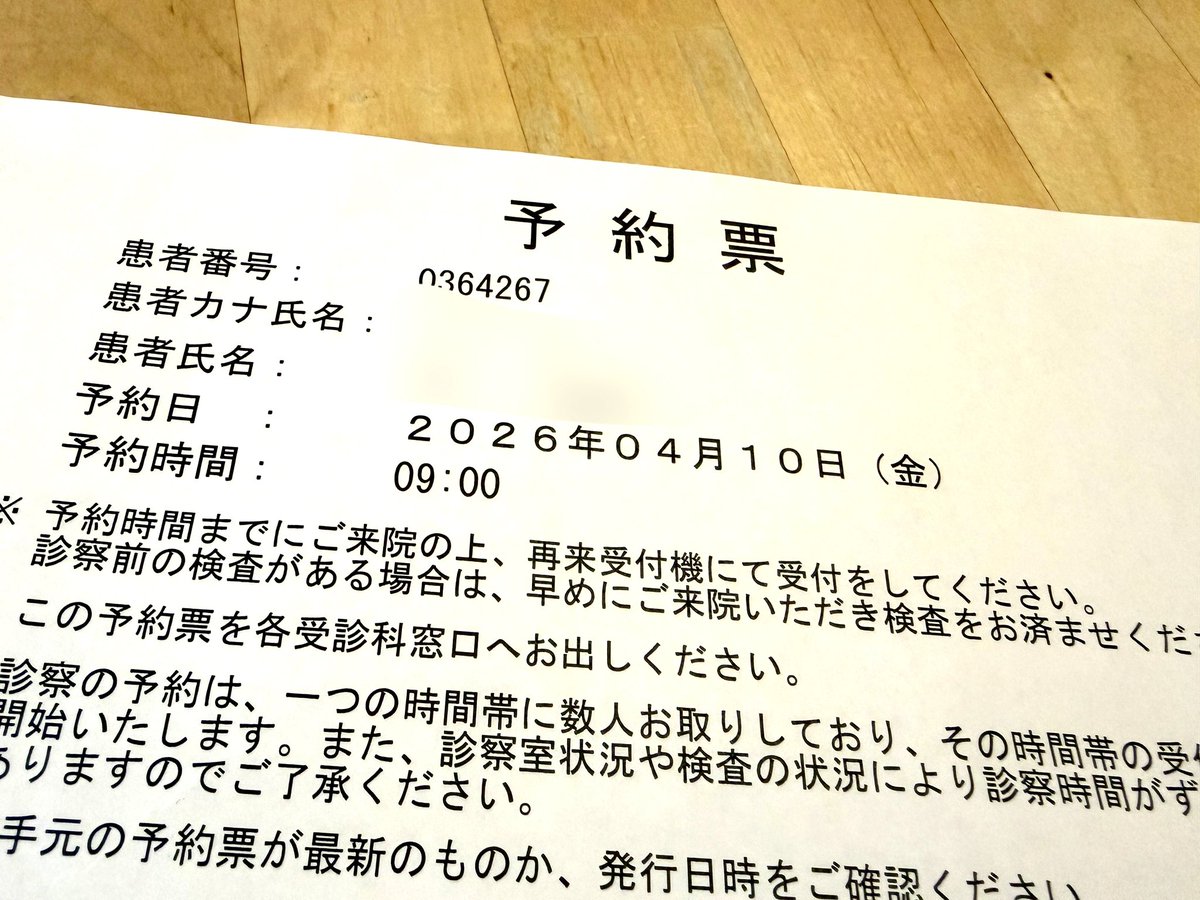 予約票
患者番号： 0364267
患者カナ氏名：
患者氏名：
予約日　： ２０２６年０４月１０日（金）
予約時間： 09:00
※ 予約時間までにご来院の上、再来受付機にて受付をしてください。
診察前の検査がある場合は、早めにご来院いただき検査をお済ませくださ
この予約票を各受診科窓口へお出しください。
診察の予約は、一つの時間帯に数人お取りしており、その時間帯の受
開始いたします。また、診察室状況や検査の状況により診察時間がず
ありますのでご了承ください。
手元の予約票が最新のものか、発行日時をご確認ください